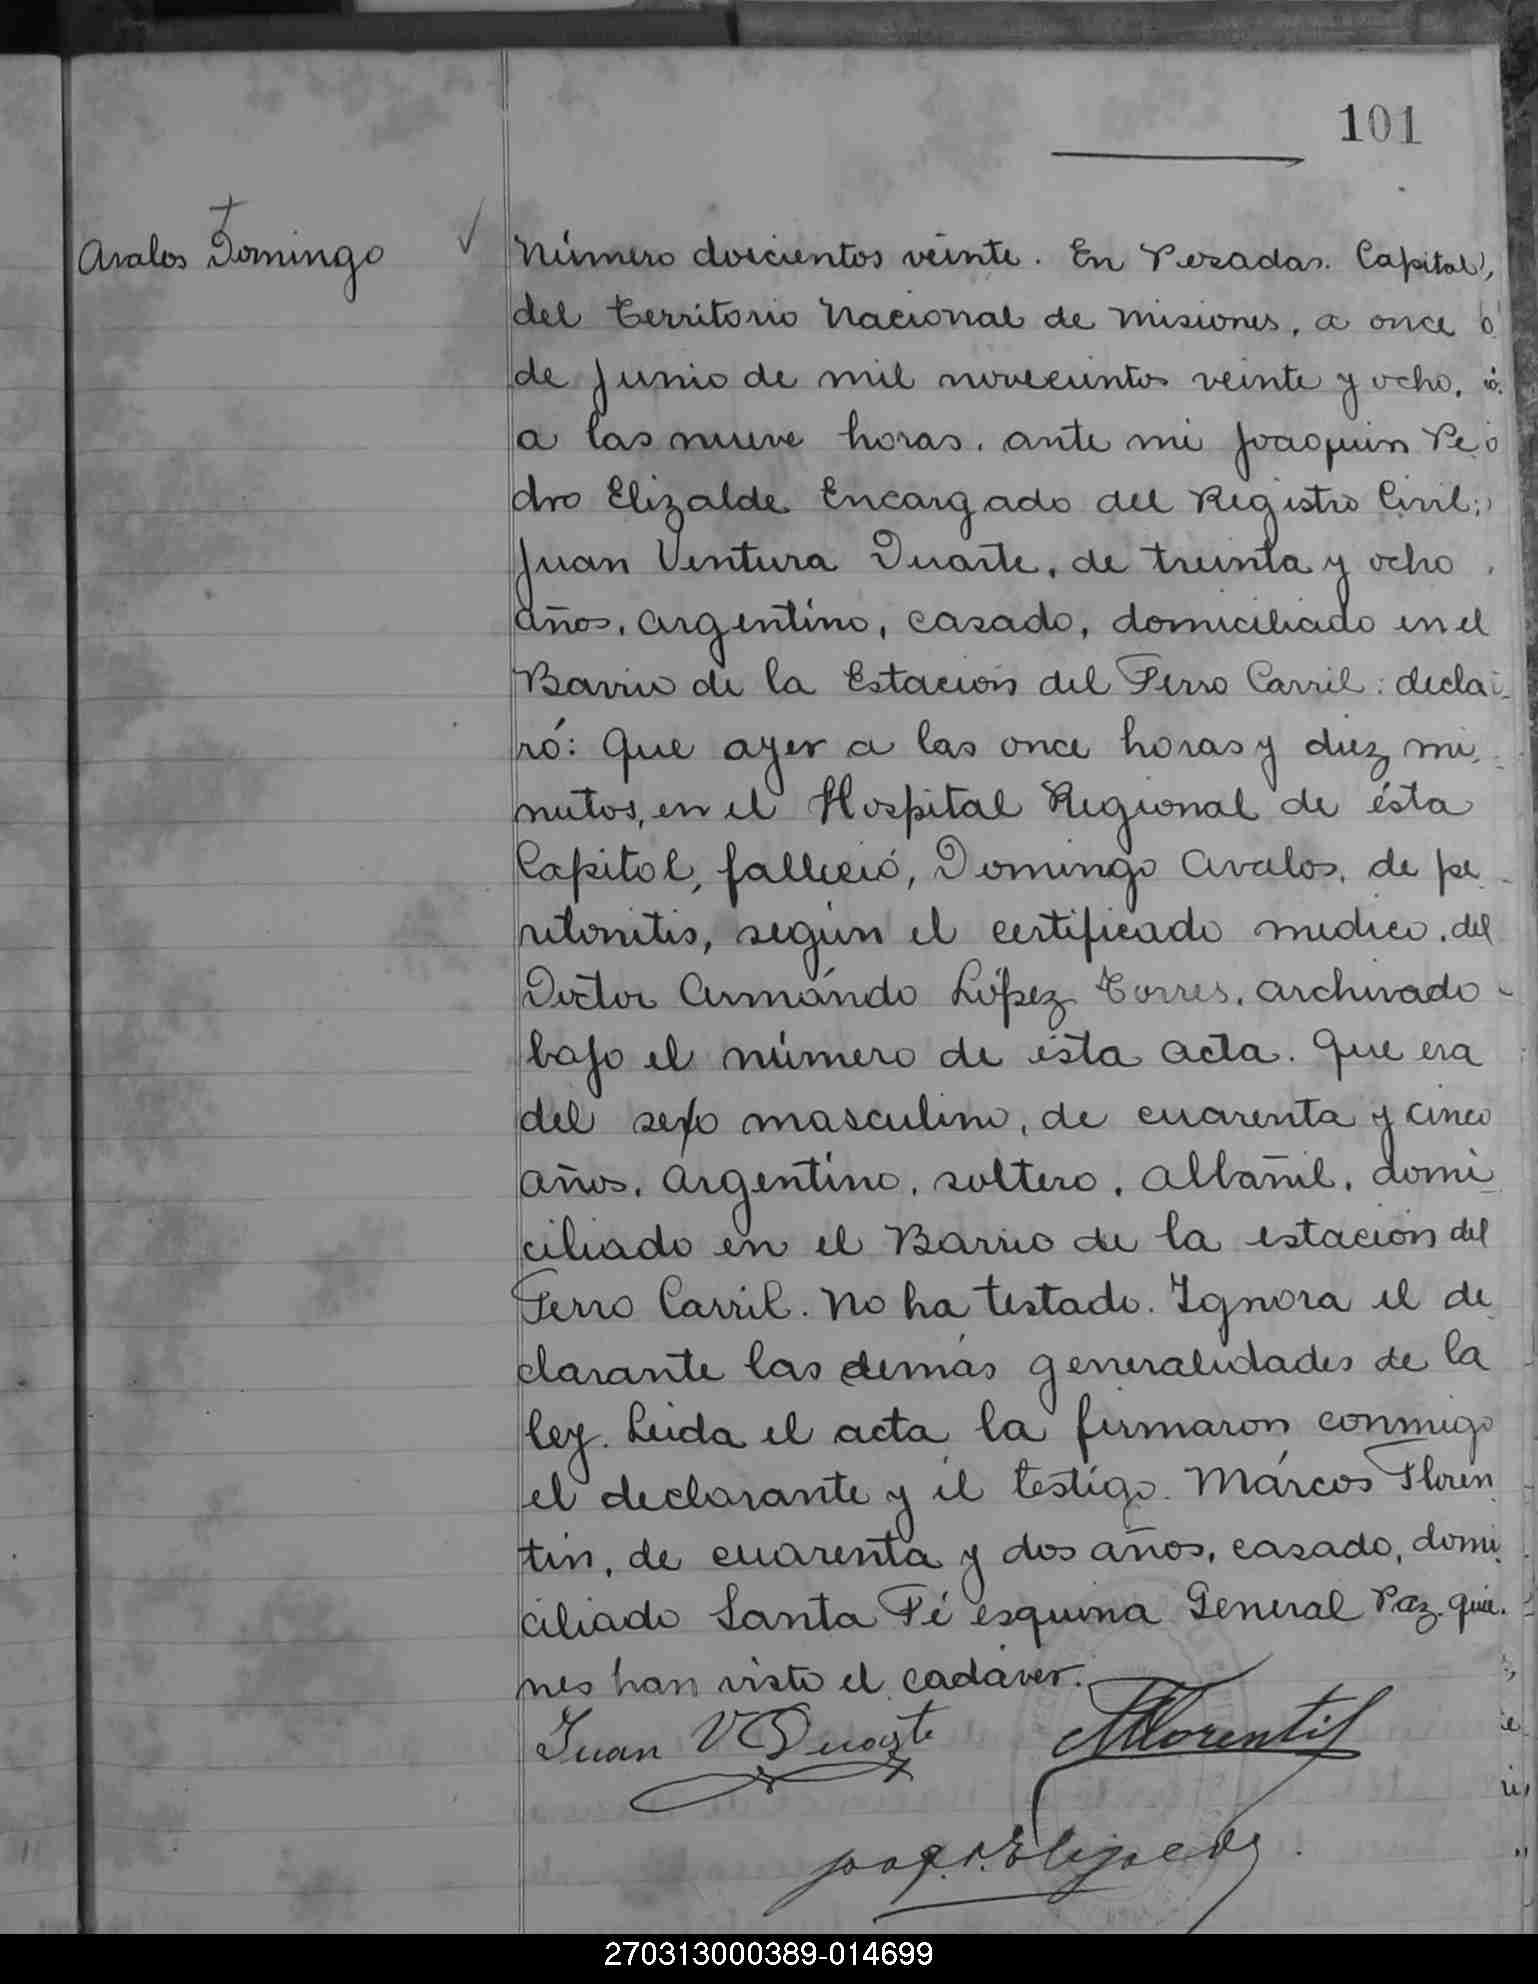 101
Avalos Domingo
Número doscientos veinte. En Posadas. Capital,
del Territorio Nacional de Misiones, a once
de Junio de mil novecientos veinte y ocho,
a las nueve horas, ante mi Joaquin Pe
dro Elizalde Encargado del Registro Civil;
Juan Ventura Duarte, de treinta y ocho
años, Argentino, casado, domiciliado en el
Barrio de la Estacion del Ferro Carril: decla
ró: Que ayer a las once horas y diez mi
nutos, en el Hospital Regional de ésta
Capital, falleció, Domingo Avalos, de pe
ritonitis, según el certificado medico, del
Doctor Armándo López Torres, archivado
bajo el número de ésta acta. Que era
del sexo masculino, de cuarenta y cinco
años, Argentino, soltero, Albañil, domi
ciliado en el Barrio de la estación del
Ferro Carril. No ha testado. Ignora el de
clarante las demás generalidades de la
ley. Leida el acta la firmaron conmigo
el declarante y el testigo. Márcos Floren
tin, de cuarenta y dos años, casado, domi
ciliado Santa Fé esquina General Paz. quie
nes han visto el cadáver.
Juan V Duarte
MFlorentin
Joaq. P. Elizalde
270313000389-014699